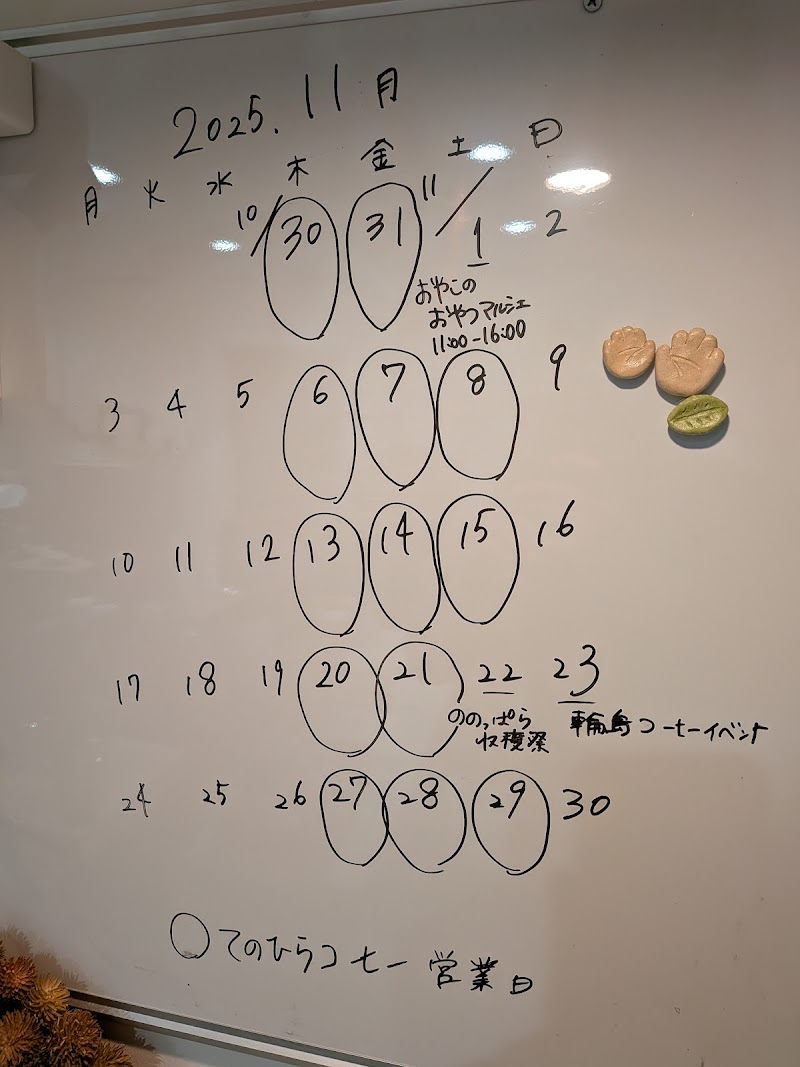 2025. 11月
月 火 水 木 金 土 日
10/30 31 11/1 2
おやこの
おやつマルシェ
11:00-16:00
3 4 5 6 7 8 9
10 11 12 13 14 15 16
17 18 19 20 21 22 23
ののっぱら
収穫祭
輪島コーヒーイベント
24 25 26 27 28 29 30
○てのひらコーヒー 営業日